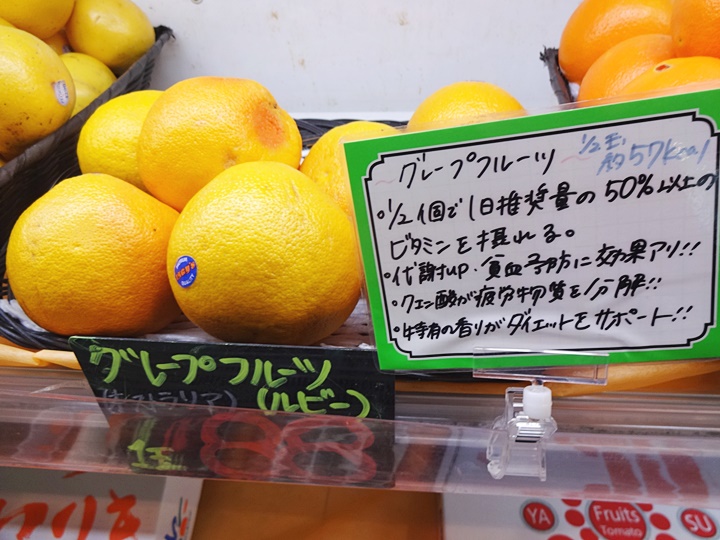 グレープフルーツ
1/2玉
約57kcal
・1/2個で1日推奨量の50%以上の
ビタミンを摂れる。
・代謝up・貧血予防に効果アリ!!
・クエン酸が疲労物質を分解!!
・特有の香りがダイエットをサポート!!
グレープフルーツ
(オーストラリア) (ルビー)
1玉 88
YA
Fruits
Tomato
SU